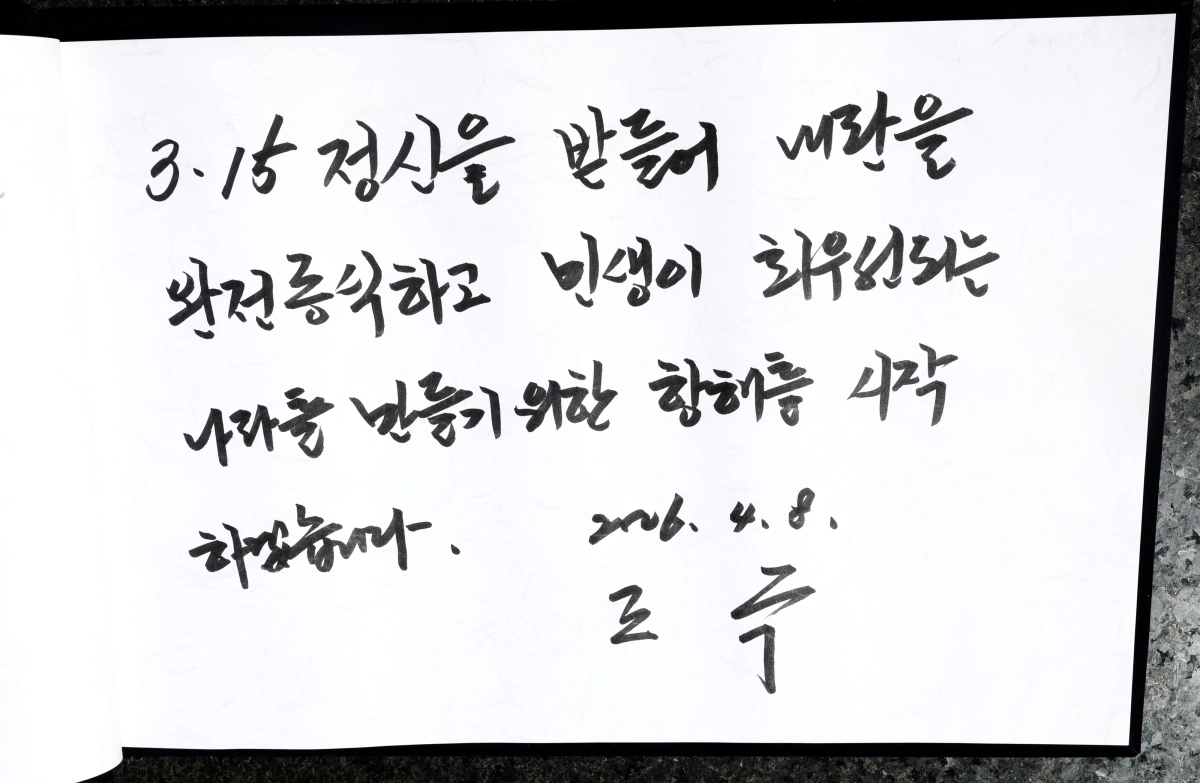 3.15 정신을 받들어 내란을
완전종식하고 민생이 최우선되는
나라를 만들기 위한 항해를 시작
하겠습니다.
2026. 4. 8.